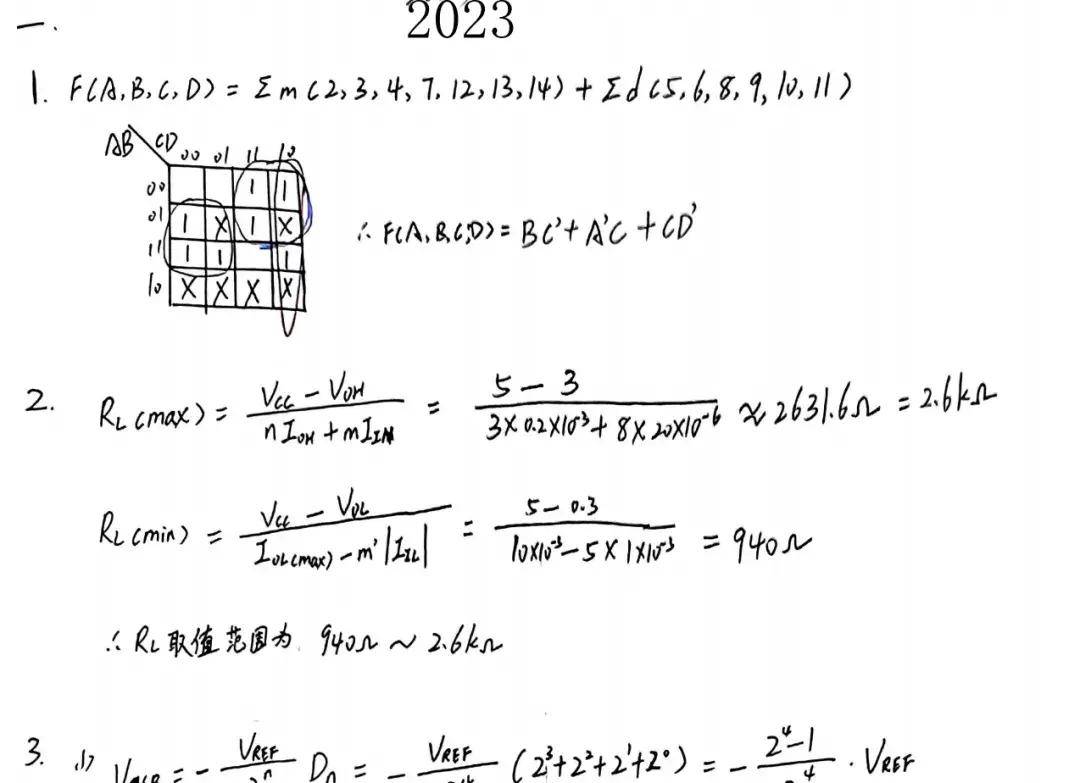 一.
2023
1. F(A,B,C,D) = Σm(2,3,4,7,12,13,14) + Σd(5,6,8,9,10,11)
AB CD 00 01 11 10
00 1 1
01 1 X 1 X
11 1 1 1
10 X X X X
∴ F(A,B,C,D) = BC' + A'C + CD'
2. RL(max) = (VCC − VOH)/(nIOH + mIIH) = (5 − 3)/(3×0.2×10⁻³ + 8×20×10⁻⁶) ≈ 2631.6Ω = 2.6kΩ
RL(min) = (VCC − VOL)/(IOL(max) − m'|IIL|) = (5 − 0.3)/(10×10⁻³ − 5×1×10⁻³) = 940Ω
∴ RL 取值范围为 940Ω ~ 2.6kΩ
3. (1) = − VREF/2ⁿ Dn = − VREF/2⁴ (2³+2²+2¹+2⁰) = − (2⁴−1)/2⁴ · VREF